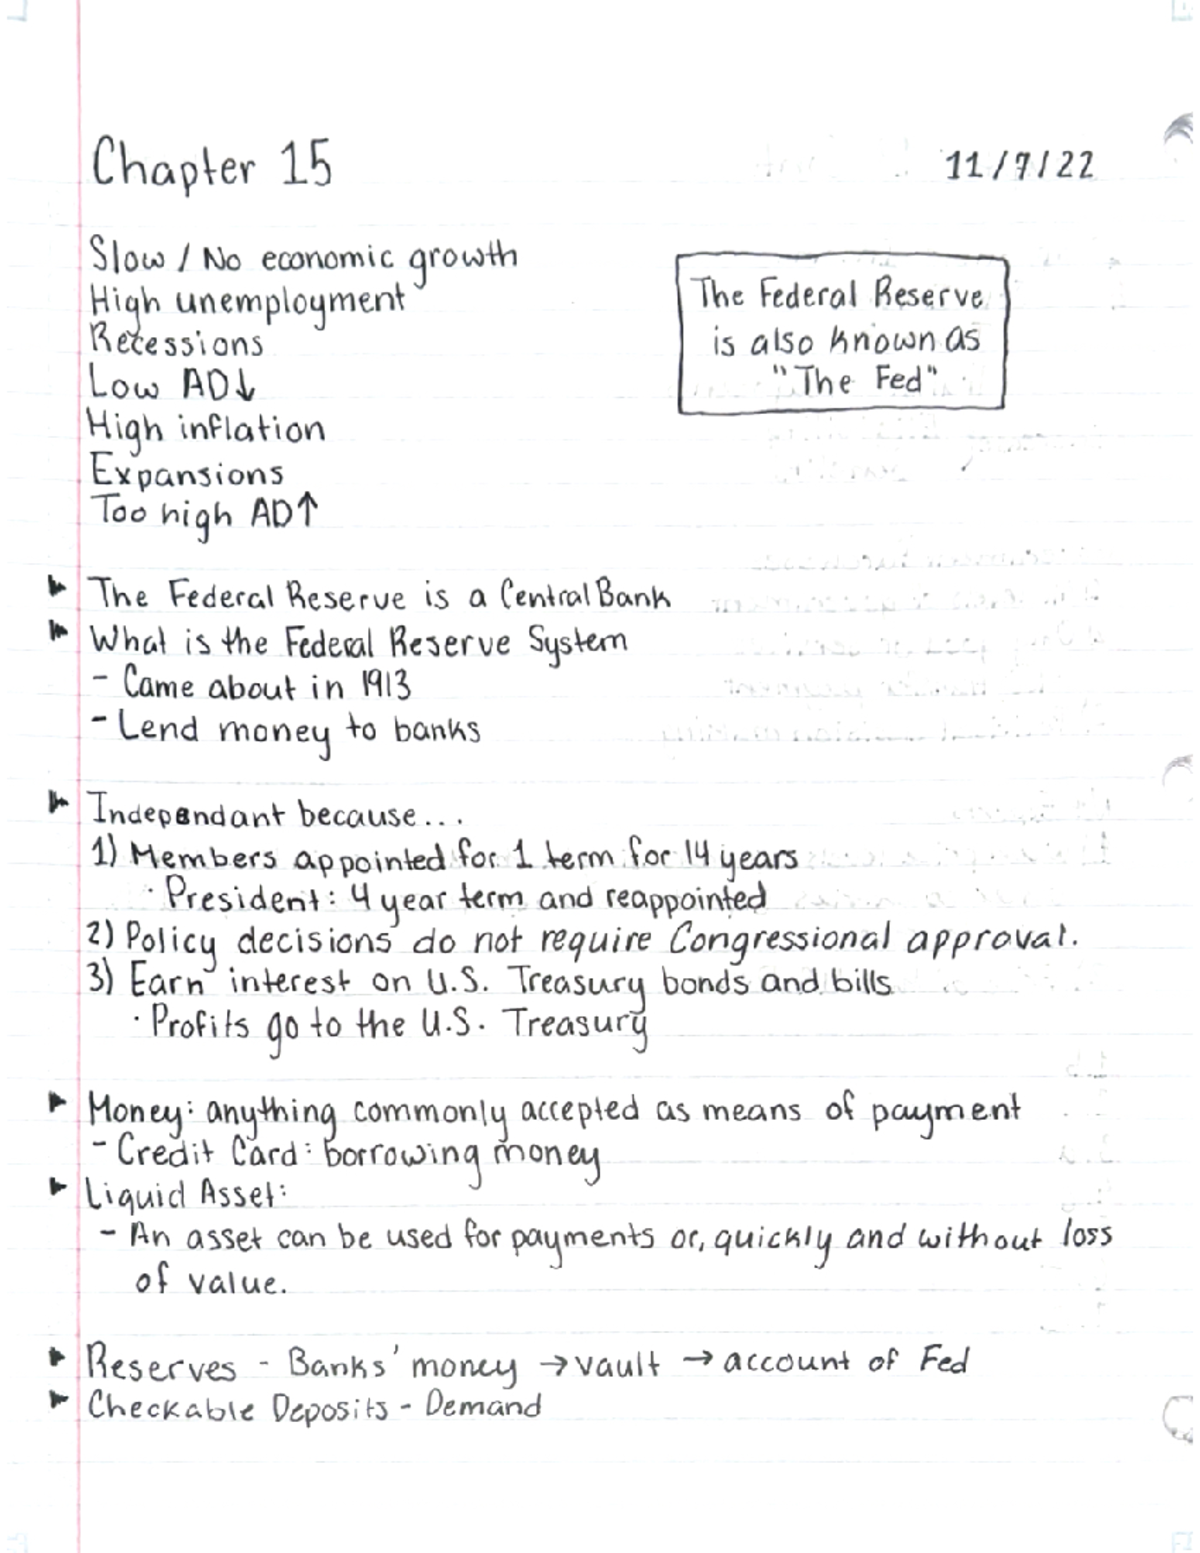 Chapter 15
11/7/22
Slow / No economic growth
High unemployment
Recessions
Low AD↓
High inflation
Expansions
Too high AD↑
The Federal Reserve
is also known as
"The Fed"
The Federal Reserve is a Central Bank
What is the Federal Reserve System
- Came about in 1913
- Lend money to banks
Independant because...
1) Members appointed for 1 term for 14 years
· President: 4 year term and reappointed
2) Policy decisions do not require Congressional approval.
3) Earn interest on U.S. Treasury bonds and bills
· Profits go to the U.S. Treasury
Money: anything commonly accepted as means of payment
- Credit Card: borrowing money
Liquid Asset:
- An asset can be used for payments or, quickly and without loss
of value.
Reserves - Banks' money → vault → account of Fed
Checkable Deposits - Demand